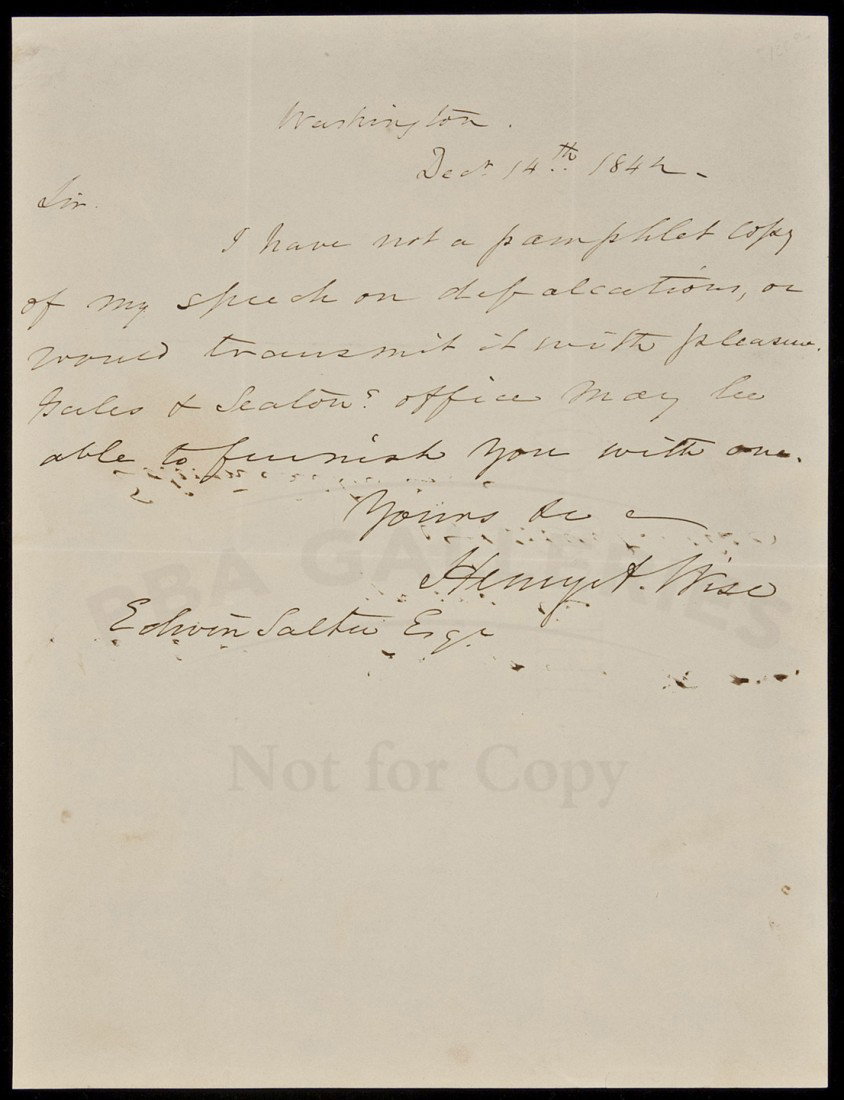 Washington.
Decr. 14th. 1842.
Sir.
I have not a pamphlet copy
of my speech on defalcations, or
would transmit it with pleasure.
Gales & Seatons office may be
able to furnish you with one.
Yours &c
Henry A. Wise
Edwin Salter Esqr
PBA GALLERIES
Not for Copy